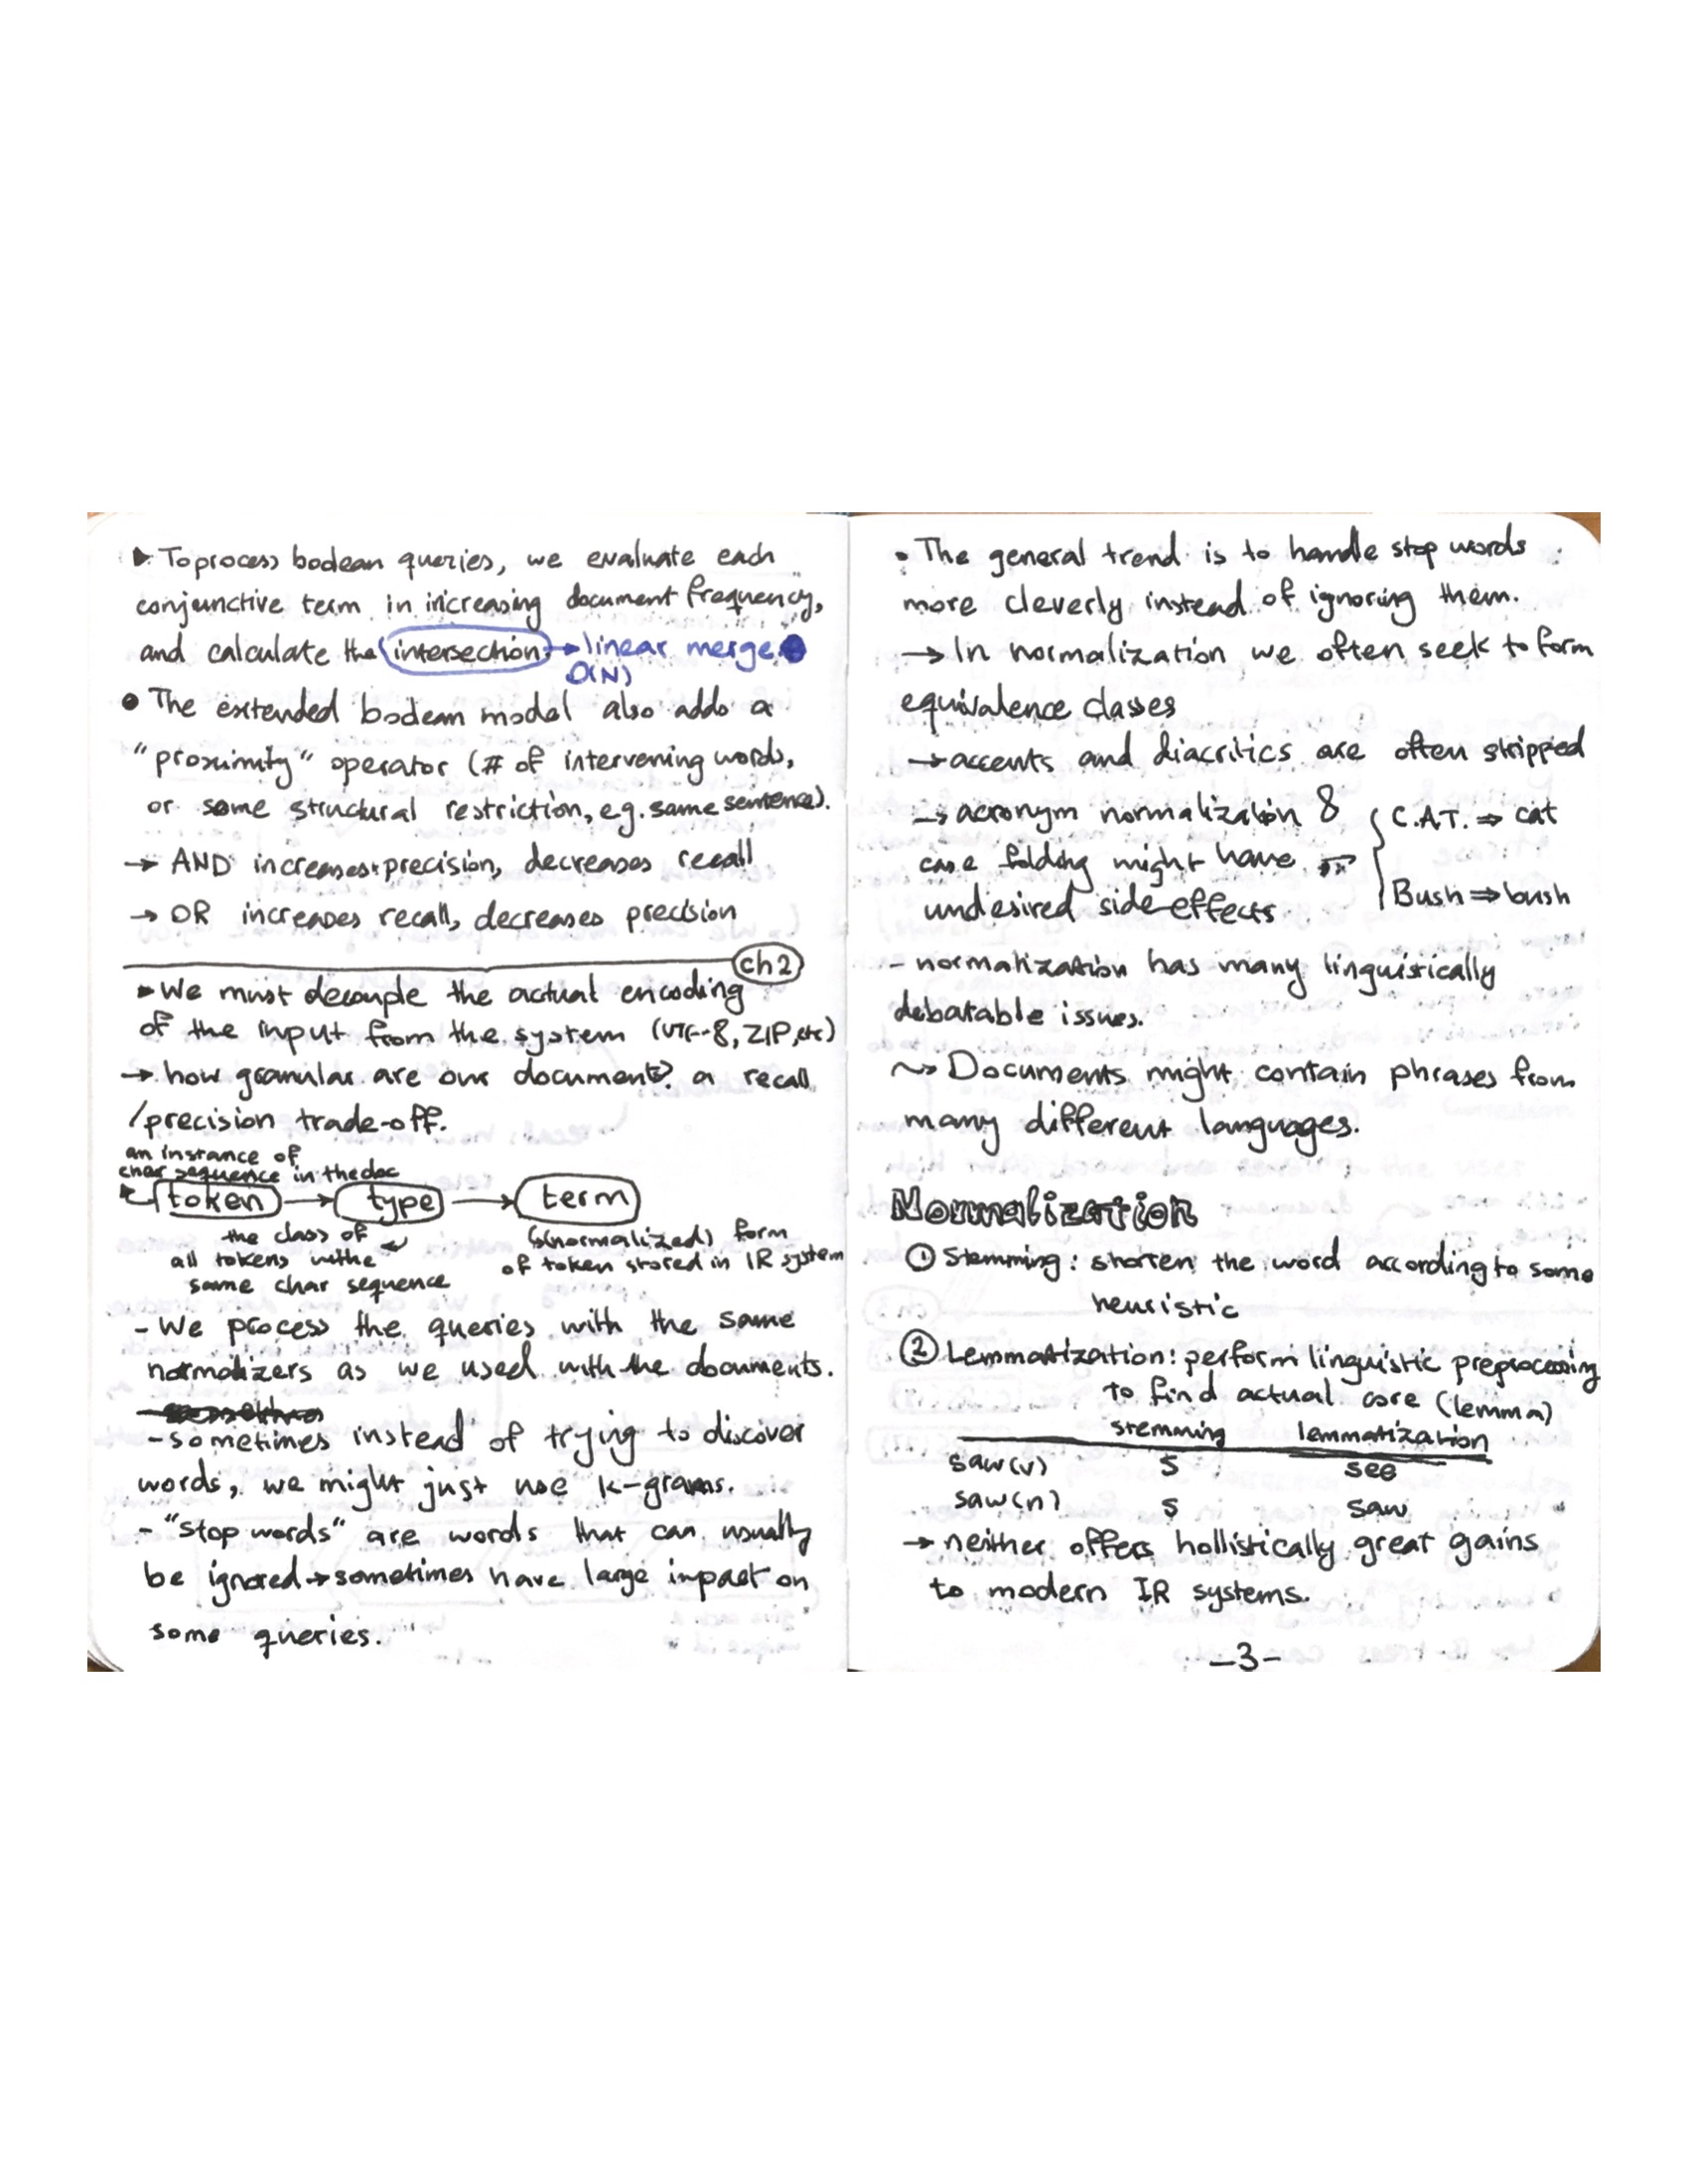 ▶ To process boolean queries, we evaluate each
conjunctive term in increasing document frequency,
and calculate the intersection → linear merge
O(N)
• The extended boolean model also adds a
"proximity" operator (# of intervening words,
or some structural restriction, e.g. same sentence).
→ AND increases precision, decreases recall
→ OR increases recall, decreases precision
ch2
▸ We must decouple the actual encoding
of the input from the system (UTF-8, ZIP, etc)
→ how granular are our documents? a recall
/precision trade-off.
an instance of
char sequence in the doc
token → type → term
the class of
all tokens w the
same char sequence
(normalized) form
of token stored in IR system
- We process the queries with the same
normalizers as we used with the documents.
- sometimes instead of trying to discover
words, we might just use k-grams.
- "stop words" are words that can usually
be ignored → sometimes have large impact on
some queries.
• The general trend is to handle stop words
more cleverly instead of ignoring them.
→ In normalization we often seek to form
equivalence classes
→ accents and diacritics are often stripped
→ acronym normalization &
case folding might have
undesired side effects
C.A.T. ⇒ cat
Bush ⇒ bush
- normalization has many linguistically
debatable issues.
~> Documents might contain phrases from
many different languages.
Normalization
① Stemming: shorten the word according to some
heuristic
② Lemmatization: perform linguistic preprocessing
to find actual core (lemma)
stemming lemmatization
saw(v) s see
saw(n) s saw
→ neither offers hollistically great gains
to modern IR systems.
-3-